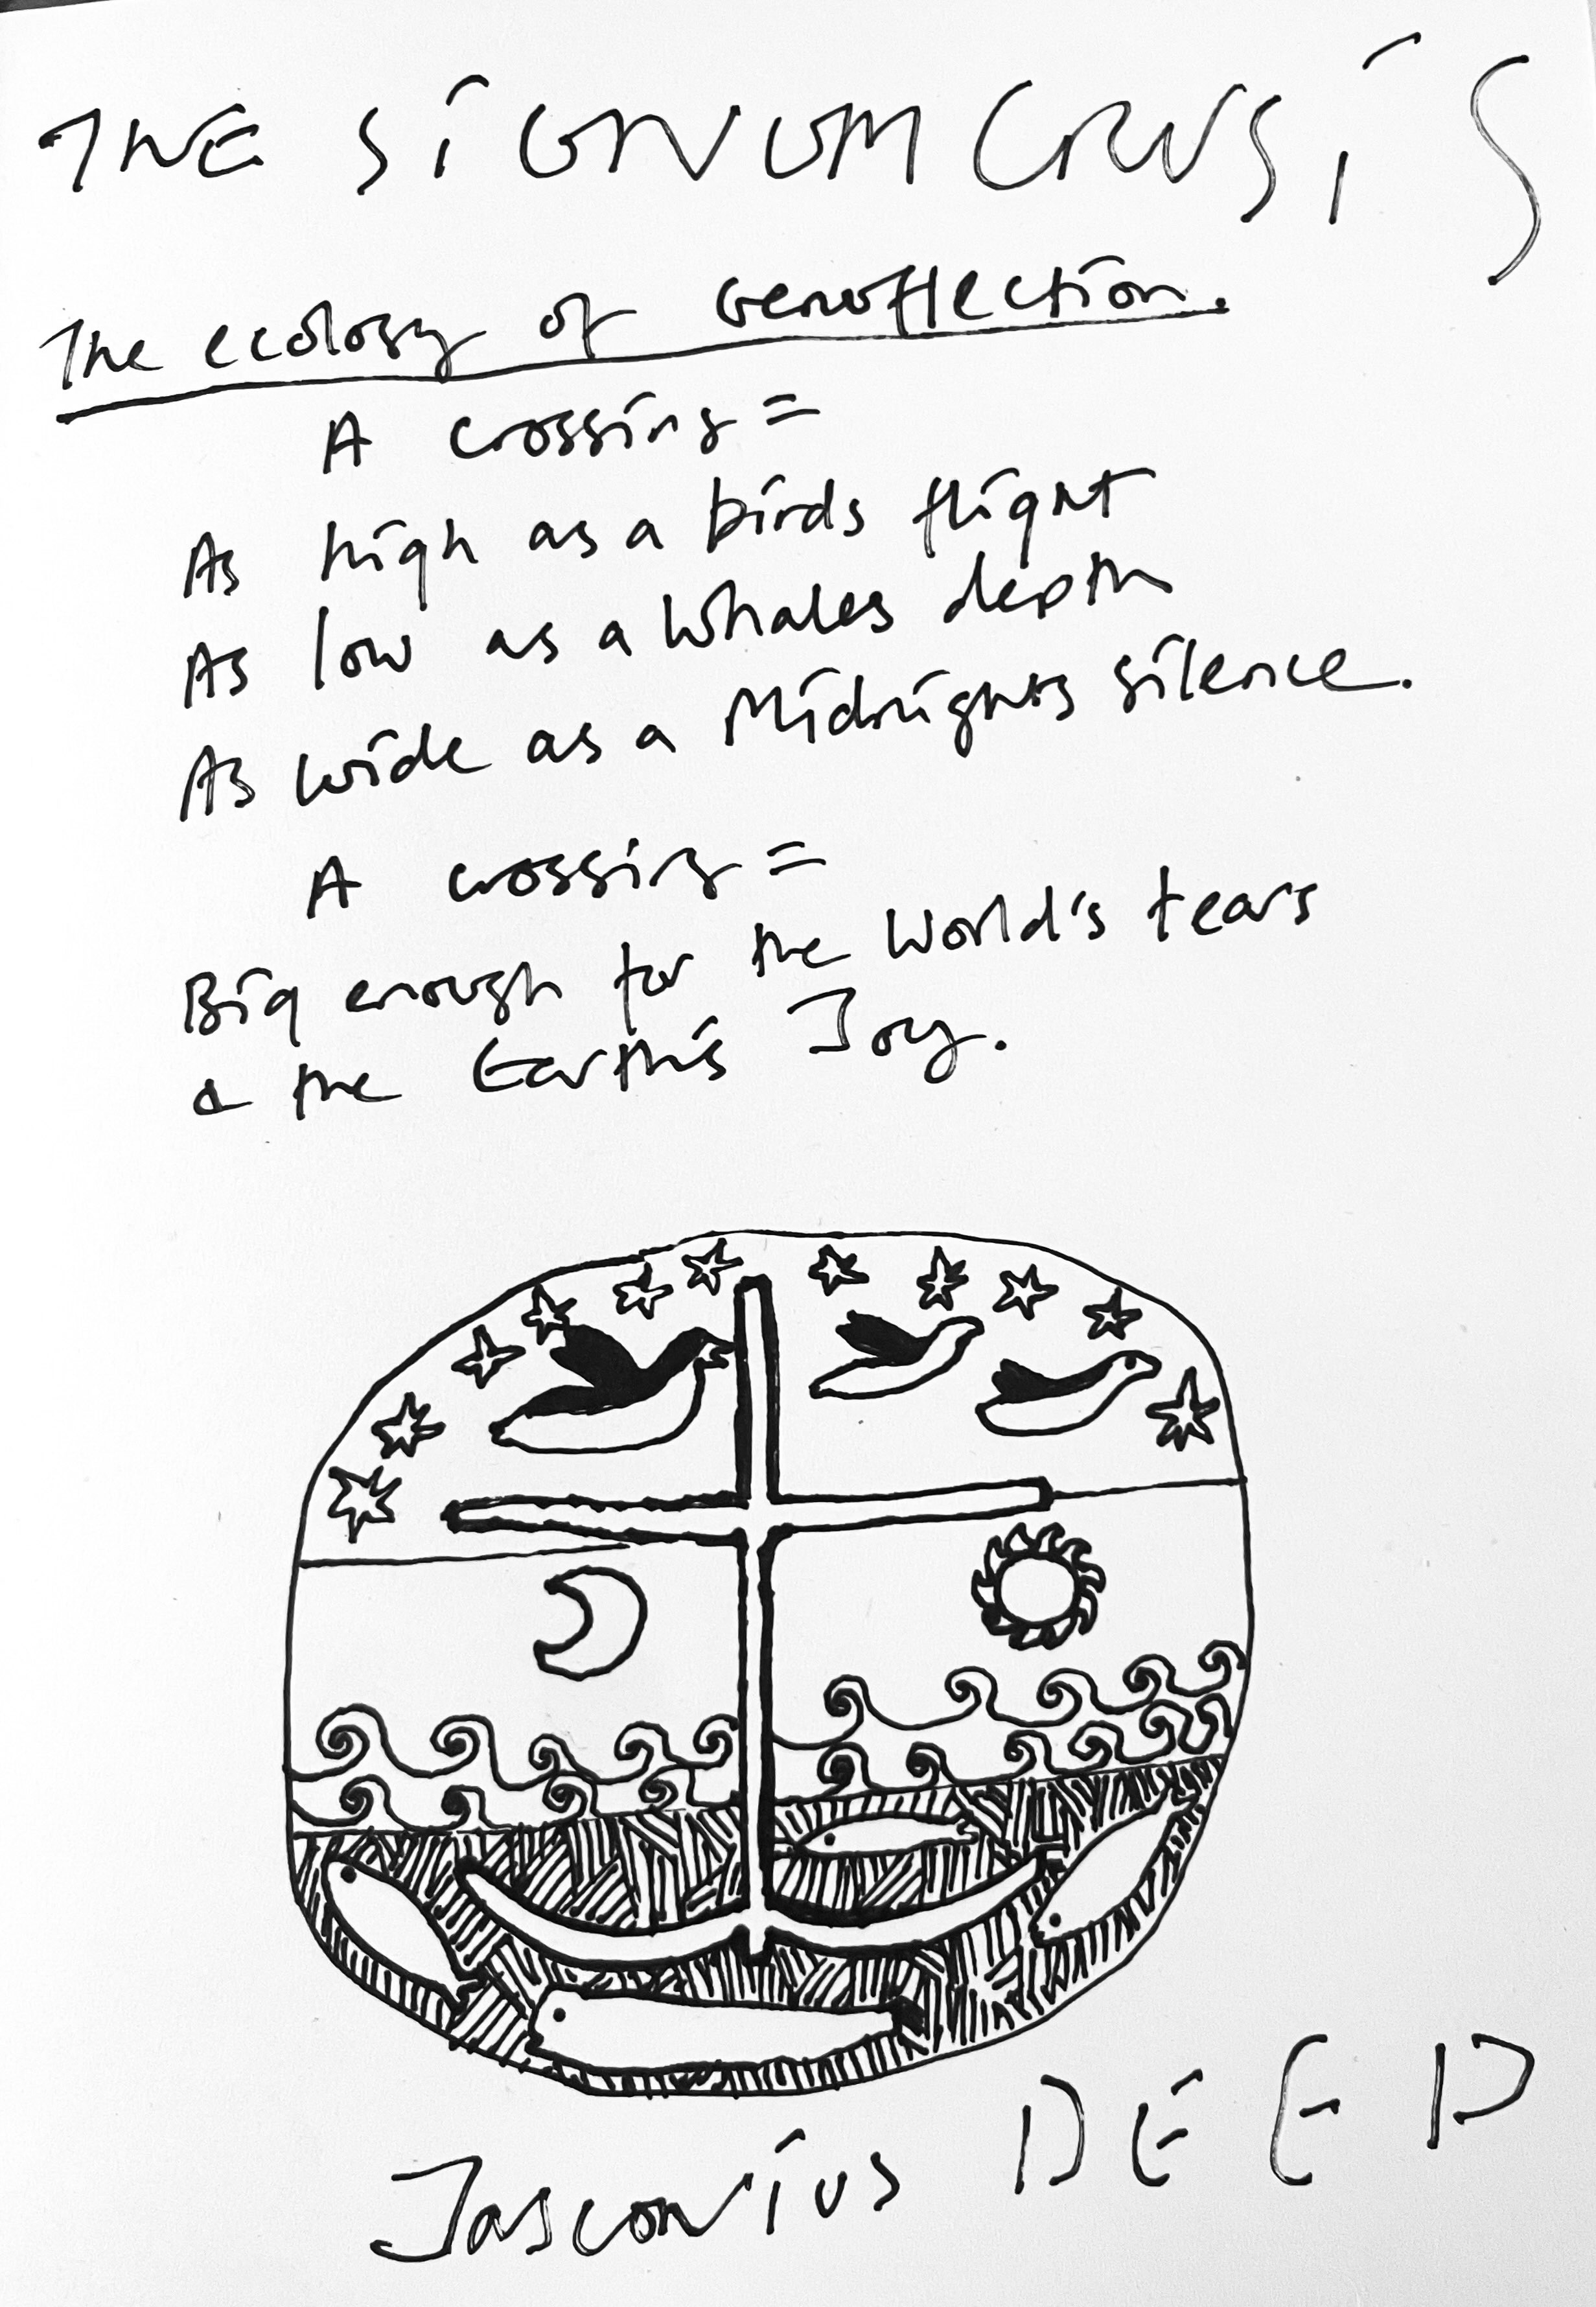 THE SiGNUM CRUSiS
The ecology of Genuflection.
A crossing =
As high as a birds flight
As low as a whales depth
As wide as a Midnights silence.
A crossing =
Big enough for the World's tears
& the Earth's Joy.
Jasconius DEEP